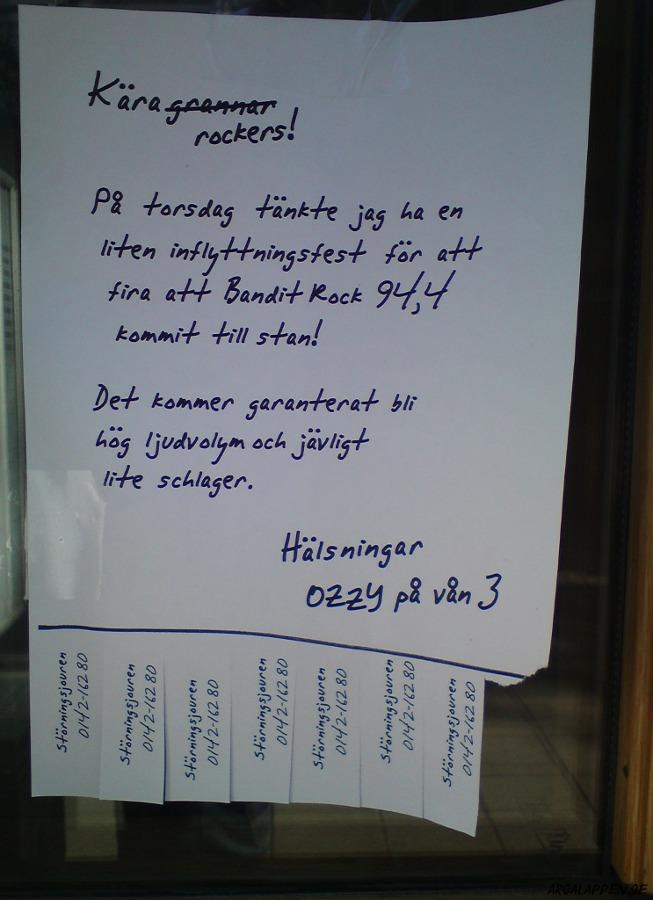 Kära grannar
rockers!
På torsdag tänkte jag ha en
liten inflyttningsfest för att
fira att Bandit Rock 94,4
kommit till stan!
Det kommer garanterat bli
hög ljudvolym och jävligt
lite schlager.
Hälsningar
OZZY på vån 3
Störningsjouren
0142-162 80
Störningsjouren
0142-162 80
Störningsjouren
0142-162 80
Störningsjouren
0142-162 80
Störningsjouren
0142-162 80
Störningsjouren
0142-162 80
Störningsjouren
0142-162 80
ARGALAPPEN.SE